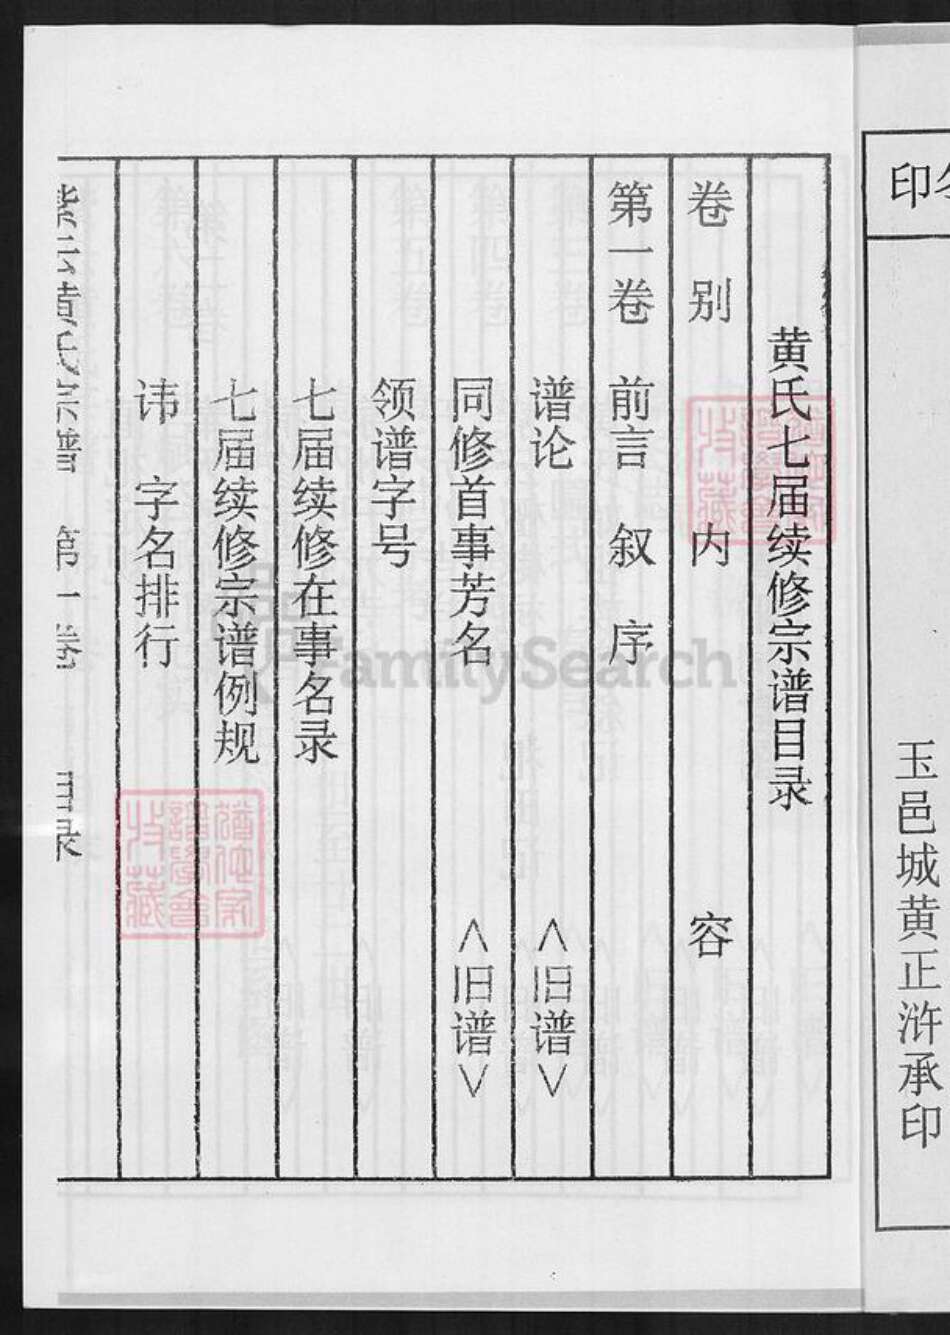 印
玉邑城黄正浒承印
黄氏七届续修宗谱目录
卷别 内 容
第一卷 前言 叙 序
谱论 <旧谱>
同修首事芳名 <旧谱>
领谱字号
七届续修在事名录
七届续修宗谱例规
讳 字名排行
紫云黄氏宗谱 第一卷 目录
FamilySearch